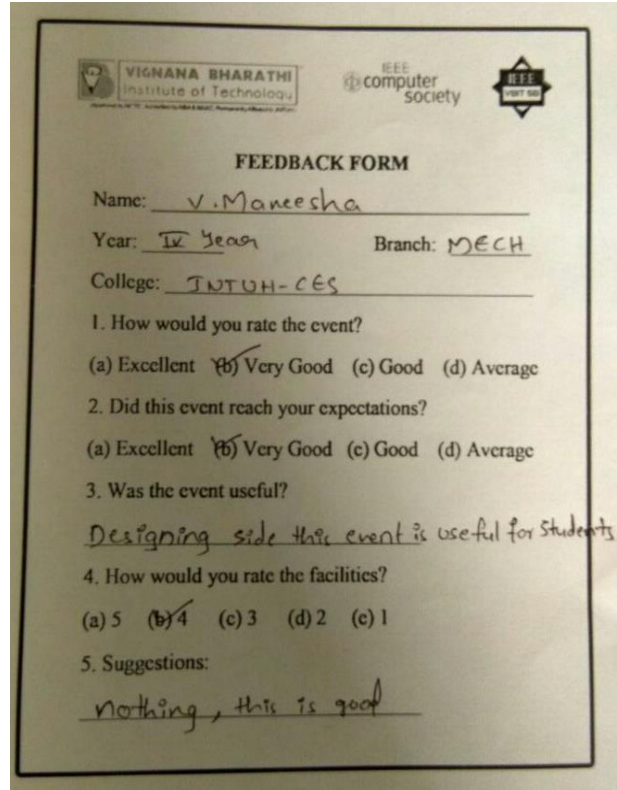 VIGNANA BHARATHI
Institute of Technology
IEEE
computer
society
IEEE
VBIT SB
FEEDBACK FORM
Name: V.Maneesha
Year: IV Year Branch: MECH
College: JNTUH-CES
1. How would you rate the event?
(a) Excellent (b) Very Good (c) Good (d) Average
2. Did this event reach your expectations?
(a) Excellent (b) Very Good (c) Good (d) Average
3. Was the event useful?
Designing side this event is useful for Students
4. How would you rate the facilities?
(a) 5 (b) 4 (c) 3 (d) 2 (e) 1
5. Suggestions:
nothing, this is good